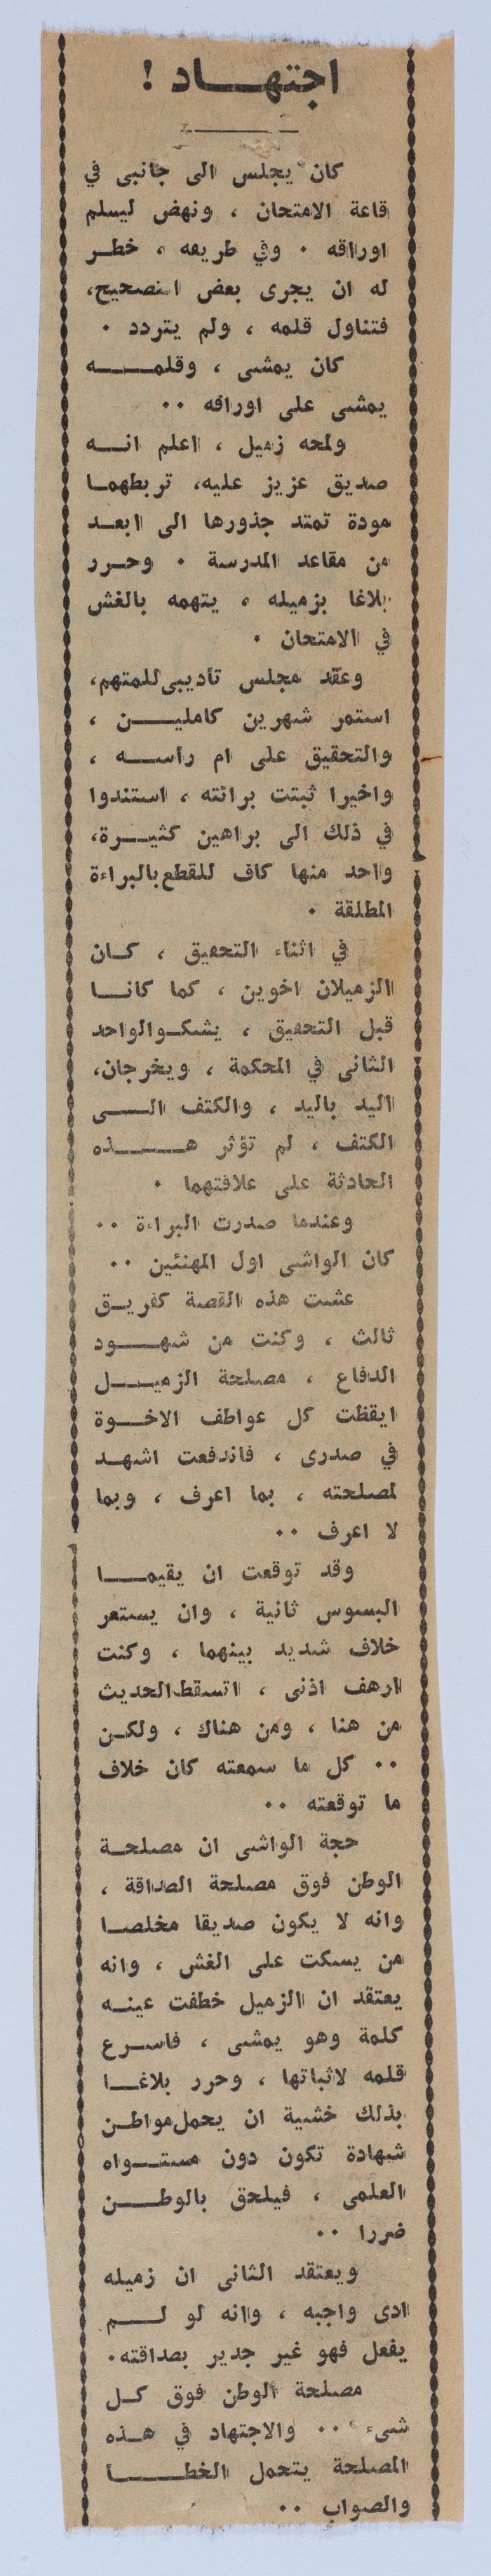 اجتهاد !
كان يجلس الى جانبى في
قاعة الامتحان ، ونهض ليسلم
اوراقه . وفي طريقه ، خطر
له ان يجرى بعض التصحيح،
فتناول قلمه ، ولم يتردد .
كان يمشى ، وقلمه
يمشى على اوراقه ..
ولمحه زميل ، اعلم انه
صديق عزيز عليه، تربطهما
مودة تمتد جذورها الى ابعد
من مقاعد المدرسة . وحرر
بلاغا بزميله ، يتهمه بالغش
في الامتحان .
وعقد مجلس تأديبى للمتهم،
استمر شهرين كاملين ،
والتحقيق على ام راسه ،
واخيرا ثبتت برائته ، استندوا
في ذلك الى براهين كثيرة،
واحد منها كاف للقطع بالبراءة
المطلقة .
في اثناء التحقيق ، كان
الزميلان اخوين ، كما كانا
قبل التحقيق ، يشكو الواحد
الثانى في المحكمة ، ويخرجان،
اليد باليد ، والكتف الى
الكتف ، لم تؤثر هذه
الحادثة على علاقتهما .
وعندما صدرت البراءة ..
كان الواشى اول المهنئين ..
عشت هذه القصة كفريق
ثالث ، وكنت من شهود
الدفاع ، مصلحة الزميل
ايقظت كل عواطف الاخوة
في صدرى ، فاندفعت اشهد
لمصلحته ، بما اعرف ، وبما
لا اعرف ..
وقد توقعت ان يقيما
البسوس ثانية ، وان يستعر
خلاف شديد بينهما ، وكنت
ارهف اذنى ، اتسقط الحديث
من هنا ، ومن هناك ، ولكن
.. كل ما سمعته كان خلاف
ما توقعته ..
حجة الواشى ان مصلحة
الوطن فوق مصلحة الصداقة ،
وانه لا يكون صديقا مخلصا
من يسكت على الغش ، وانه
يعتقد ان الزميل خطفت عينه
كلمة وهو يمشى ، فاسرع
قلمه لاثباتها ، وحرر بلاغا
بذلك خشية ان يحمل مواطن
شهادة تكون دون مستواه
العلمى ، فيلحق بالوطن
ضررا ..
ويعتقد الثانى ان زميله
ادى واجبه ، وانه لو لم
يفعل فهو غير جدير بصداقته.
مصلحة الوطن فوق كل
شىء .. والاجتهاد في هذه
المصلحة يتحمل الخطأ
والصواب ..